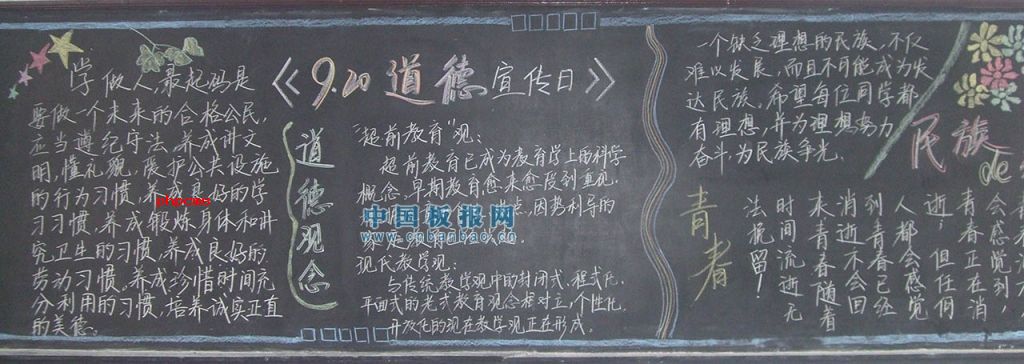 学做人,最起码是
要做一个未来的合格公民,
应当遵纪守法,养成讲文
明,懂礼貌,爱护公共设施
的行为习惯,养成良好的学
习习惯,养成锻炼身体和讲
究卫生的习惯,养成良好的
劳动习惯,养成珍惜时间充
分利用的习惯,培养诚实正直
的美德.
phecms
《9.20道德宣传日》
道德观念
"超前教育"观:
超前教育已成为教育学上的科学
概念,早期教育愈来愈受到重视.
点,因势利导的
中国板报网
www.cnbanbao.cn
现代教学观:
与传统教学观中的封闭式、程式化、
平面式的老式教育观念相对立,个性化、
开放化的现在教学观正在形成.
一个缺乏理想的民族,不仅
难以发展,而且不可能成为发
达民族,希望每位同学都
有理想,并为理想努力
奋斗,为民族争光.
民族
de
青春
会感觉到
青春正在消
逝,但任何
人都会感觉
到青春已经
消逝不会回
来青春随着
时间流逝无
法挽留!